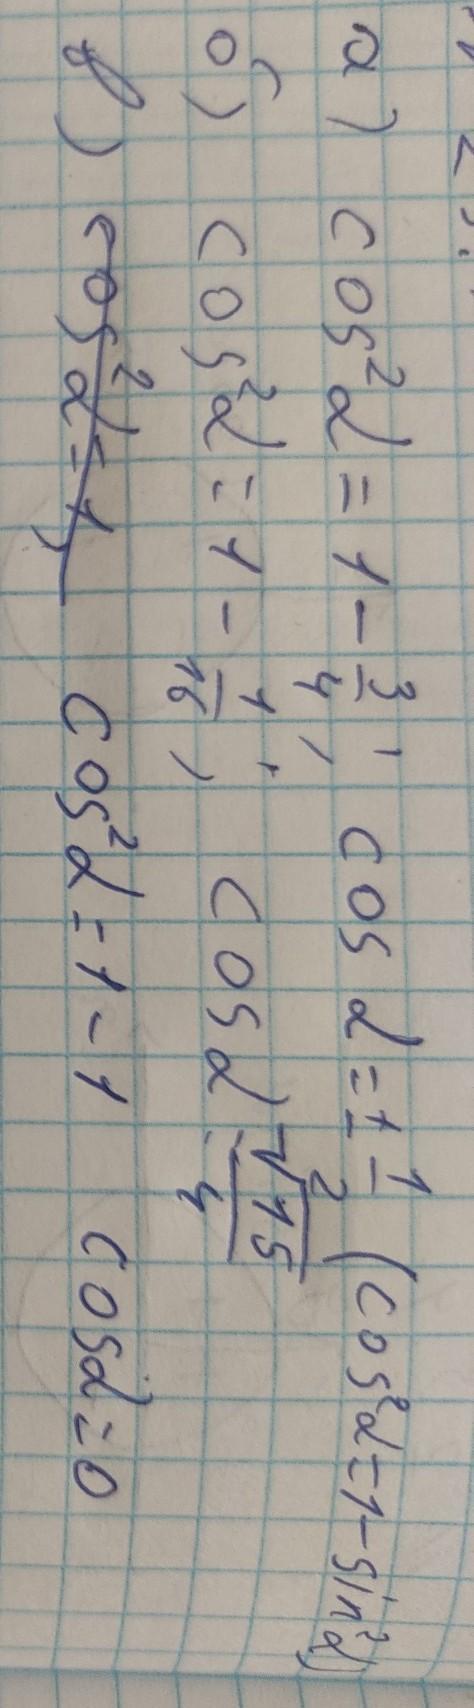 а) cos²α = 1 - 3/4; cos α = ± 1/2 (cos²α = 1 - sin²α)
б) cos²α = 1 - 1/16; cos α = √15/4
в) cos²α = 1 - 1 cos α = 0